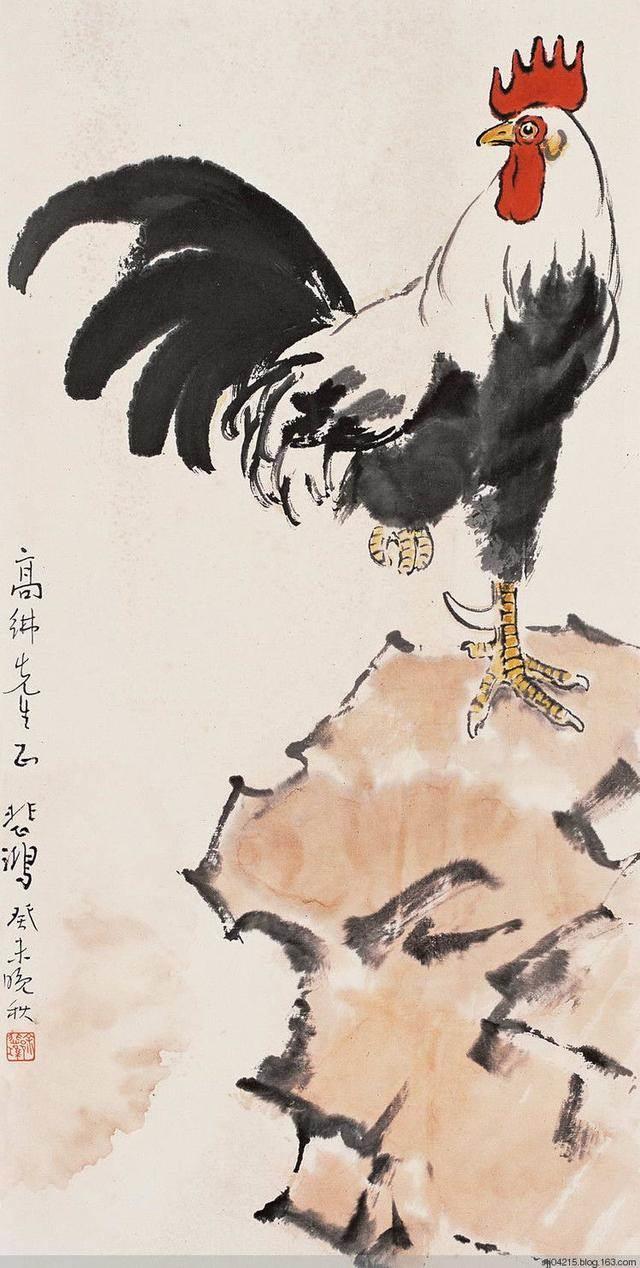 高先生正 悲鴻 癸未晚秋
sjj04215.blog.163.com